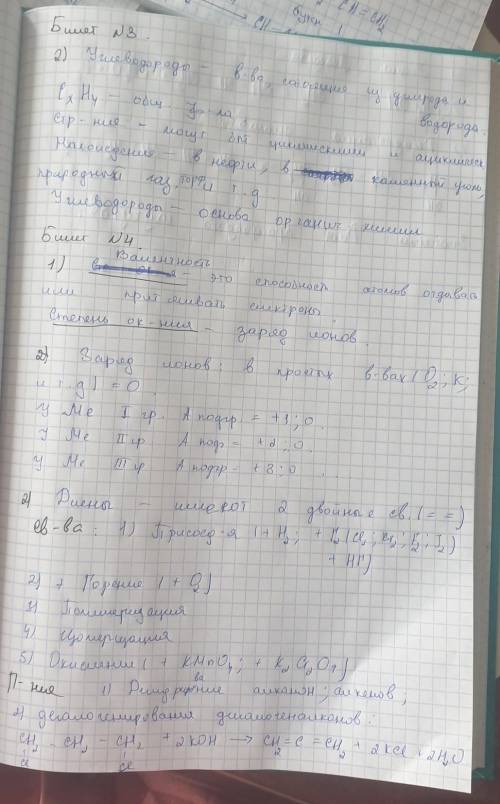 CH = CH₂
Билет №3.
2) Углеводороды – в-ва, состоящие из углерода и
водорода.
CₓHᵧ – общ. ф-ла
Стр-ние – могут быть циклическими и ациклическими
Нахождение – в нефти, в каменный уголь,
природный газ, торф и т.д
Углеводороды – основа органич. химии
Билет №4.
Валентность
1) – это способность атомов отдавать
или притягивать электроны.
Степень ок-ния – заряд ионов.
2) Заряд ионов: в простых в-вах (O₂; K;
и т.д) = 0
У Me I гр. А подгр. = +1; 0.
У Me II гр А подгр = +2; 0.
У Me III гр А подгр – +3; 0
2) Диены – имеют 2 двойные св. (= =)
Св-ва: 1) Присоед-я (+ H₂; + Г₂ (Cl₂; Br₂; I₂)
+ НГ)
2) + Горение (+ O₂)
3) Полимеризация
4)
5) Окисление ( + KMnO₄; + K₂Cr₂O₇)
П-ние 1) алканов; алкенов;
2) дегалогенирования дигалогеналканов:
CH₂ – CH₂ – CH₂ + 2KOH → CH₂ = C = CH₂ + 2KCl + 2H₂O
Cl Cl